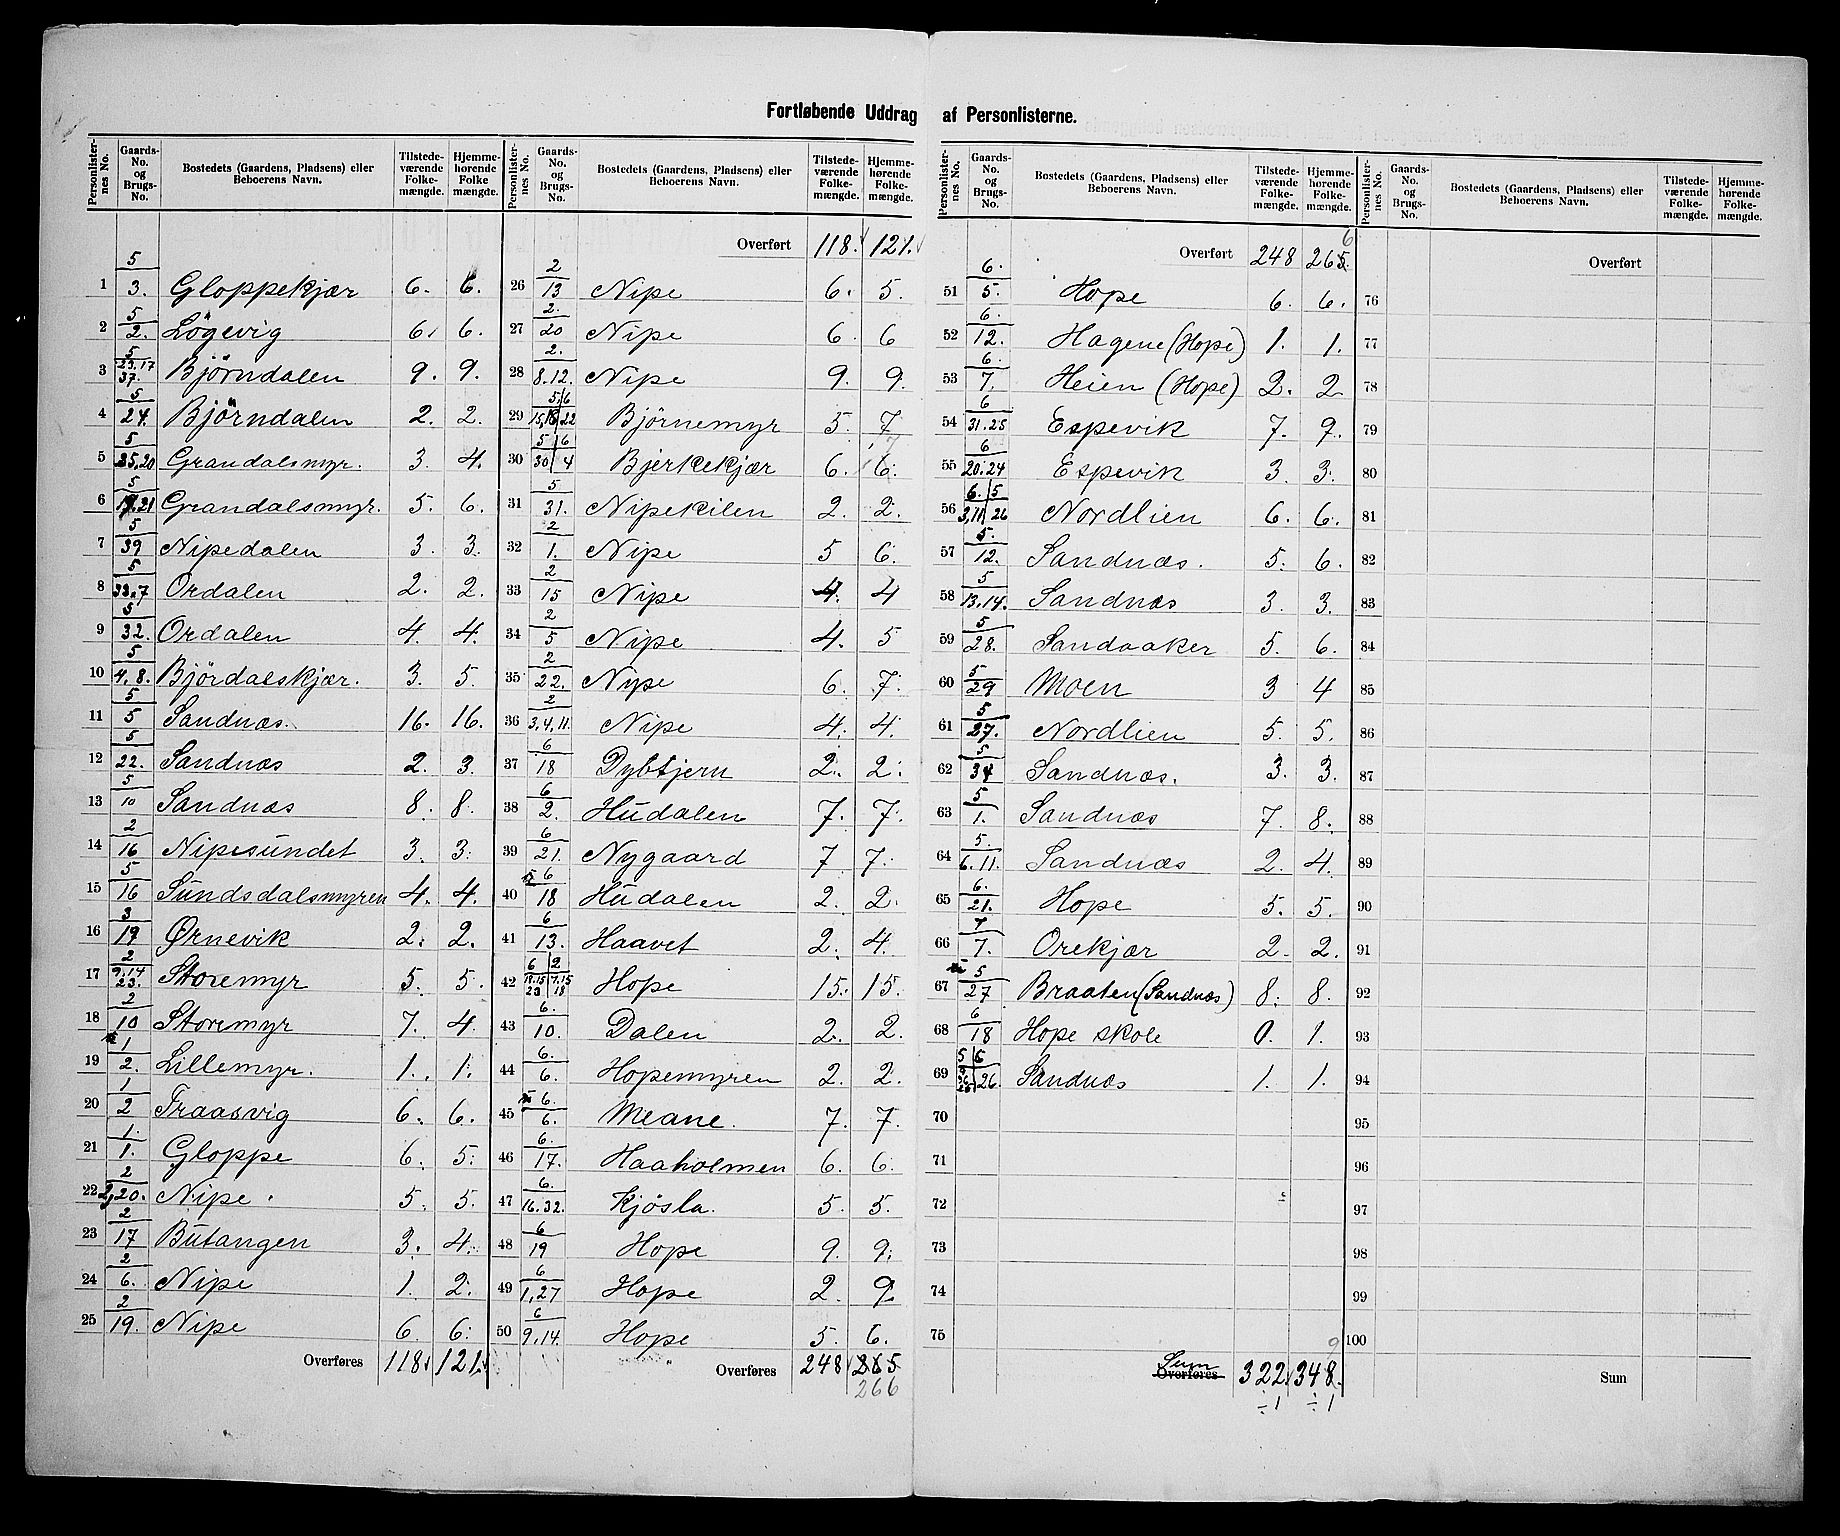 Fortløbende Uddrag af Personlisterne.
Personlisternes No. | Gaards-No. og Brugs-No. | Bostedets (Gaardens, Pladsens) eller Beboerens Navn. | Tilstedeværende Folkemængde. | Hjemmehørende Folkemængde.
1 5/3. Gloppekjær 6. 6.
2 5/2. Løgevig 6. 6.
3 5/23.17 37. Bjørndalen 9. 9.
4 5/24. Bjørndalen 2. 2.
5 5/35,20 Grandalsmyr. 3. 4.
6 5/17.21 Grandalsmyr. 5. 6.
7 5/39 Nipedalen 3. 3.
8 5/33.7 Ordalen 2. 2.
9 5/32. Ordalen 4. 4.
10 5/4.8. Björdalskjær. 3. 5.
11 5/5 Sandnæs. 16. 16.
12 5/22. Sandnæs 2. 3.
13 5/10 Sandnæs 8. 8.
14 2/16 Nipesundet 3. 3.
15 5/16 Sundsdalsmyren 4. 4.
16 3/19 Ørnevik 2. 2.
17 2/9.14 23. Storemyr 5. 5.
18 2/10 Storemyr 7. 4.
19 1/2. Lillemyr. 1. 1.
20 1/2 Traasvig 6. 6.
21 1./1. Gloppe 6. 5.
22 2/2,20. Nipe. 5. 5.
23 2/17 Butangen 3. 4.
24 2/6. Nipe 1. 2.
25 2/19. Nipe 6. 6.
Overføres 118 121.
Personlisternes No. | Gaards-No. og Brugs-No. | Bostedets (Gaardens, Pladsens) eller Beboerens Navn. | Tilstedeværende Folkemængde. | Hjemmehørende Folkemængde.
Overført 118. 121.
26 2/13 Nipe 6. 5.
27 2./20 Nipe 6. 6
28 2./8.12. Nipe 9. 9.
29 5/15,16 6/22 Bjørnemyr 5. 7
30 5/30 6/4 Bjerkekjær 6. 6.
31 5/31. Nipekilen 2. 2.
32 2/1. Nipe 5 6.
33 2/15 Nipe 4. 4
34 2/5 Nipe 4. 5
35 2/22. Nype 6. 7.
36 2/3,4,11. Nipe 4. 4.
37 6/18 Dybtjern 2. 2.
38 6/2. Hudalen 7. 7.
39 6/21. Nygaard 7 7.
40 6/18 Hudalen 2. 2.
41 6/13. Haavet 2. 4.
42 6/18.15 23 2/7.15 18 Hope 15. 15.
43 6./10. Dalen 2. 2.
44 6./6. Hopemyren 2. 2.
45 6./6. Meane. 7. 7.
46 6./17. Haaholmen 6. 6.
47 6./16.32. Kjøsla. 5. 5.
48 6/19 Hope 9. 9.
49 6/1,27 Hope 2. 9.
50 6/9.14. Hope 5. 6.
Overføres 248 265
266
Personlisternes No. | Gaards-No. og Brugs-No. | Bostedets (Gaardens, Pladsens) eller Beboerens Navn. | Tilstedeværende Folkemængde. | Hjemmehørende Folkemængde.
6
Overført 248 265.
51 6./5. Hope 6. 6.
52 6./12. Hagene (Hope) 1. 1.
53 6./7. Heien (Hope) 2. 2
54 6/31.25 Espevik 7. 9.
55 6/20.24 Espevik 3. 3.
56 6./3,11 5/26 Nordlien 6. 6.
57 5./12. Sandnæs. 5. 6.
58 5/13.14. Sandnæs 3. 3.
59 5/28. Sandaaker 5. 6.
60 5/29 Moen 3 4
61 5/27. Nordlien 5. 5.
62 5/34 Sandnæs. 3. 3.
63 5/1. Sandnæs 7. 8.
64 5./6.11. Sandnæs 2. 4.
65 6./21. Hope 5. 5.
66 7/7. Orekjær 2. 2.
67 5/27 Braaten (Sandnæs) 8. 8.
68 6/18 Hope skole 0. 1.
69 5 6/26. Sandnæs 1. 1.
70
71
72
73
74
75
Sum
Overføres 322. 348.
9
÷1 ÷1
Personlisternes No. | Gaards-No. og Brugs-No. | Bostedets (Gaardens, Pladsens) eller Beboerens Navn. | Tilstedeværende Folkemængde. | Hjemmehørende Folkemængde.
Overført
76
77
78
79
80
81
82
83
84
85
86
87
88
89
90
91
92
93
94
95
96
97
98
99
100
Sum